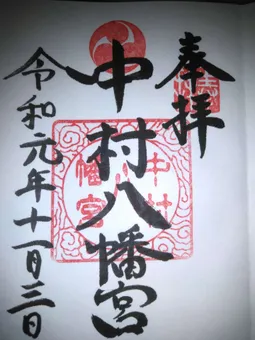 奉拝
中村八幡宮
中村
八幡宮
令和元年十一月三日